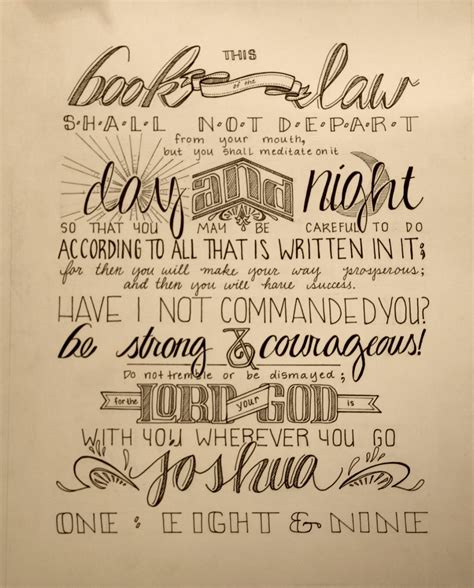 THIS
book of the law
SHALL NOT DEPART
from your mouth,
but you shall meditate on it
day and night
SO THAT YOU MAY BE CAREFUL TO DO
ACCORDING TO ALL THAT IS WRITTEN IN IT;
for then you will make your way prosperous;
and then you will have success.
HAVE I NOT COMMANDED YOU?
be strong & courageous!
Do not tremble or be dismayed;
for the LORD your GOD is
WITH YOU WHEREVER YOU GO
Joshua
ONE : EIGHT & NINE